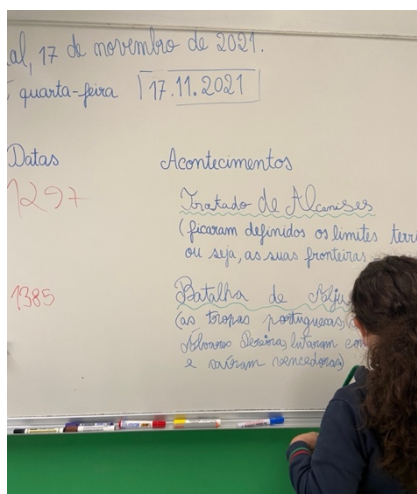 al, 17 de novembro de 2021.
quarta-feira 17.11.2021
Datas Acontecimentos
1297 Tratado de Alcanises
(ficaram definidos os limites terri
ou seja, as suas fronteiras
1385 Batalha de Alju
(as tropas portuguesas,
Álvares Pereira, lutaram con
e saíram vencedoras)